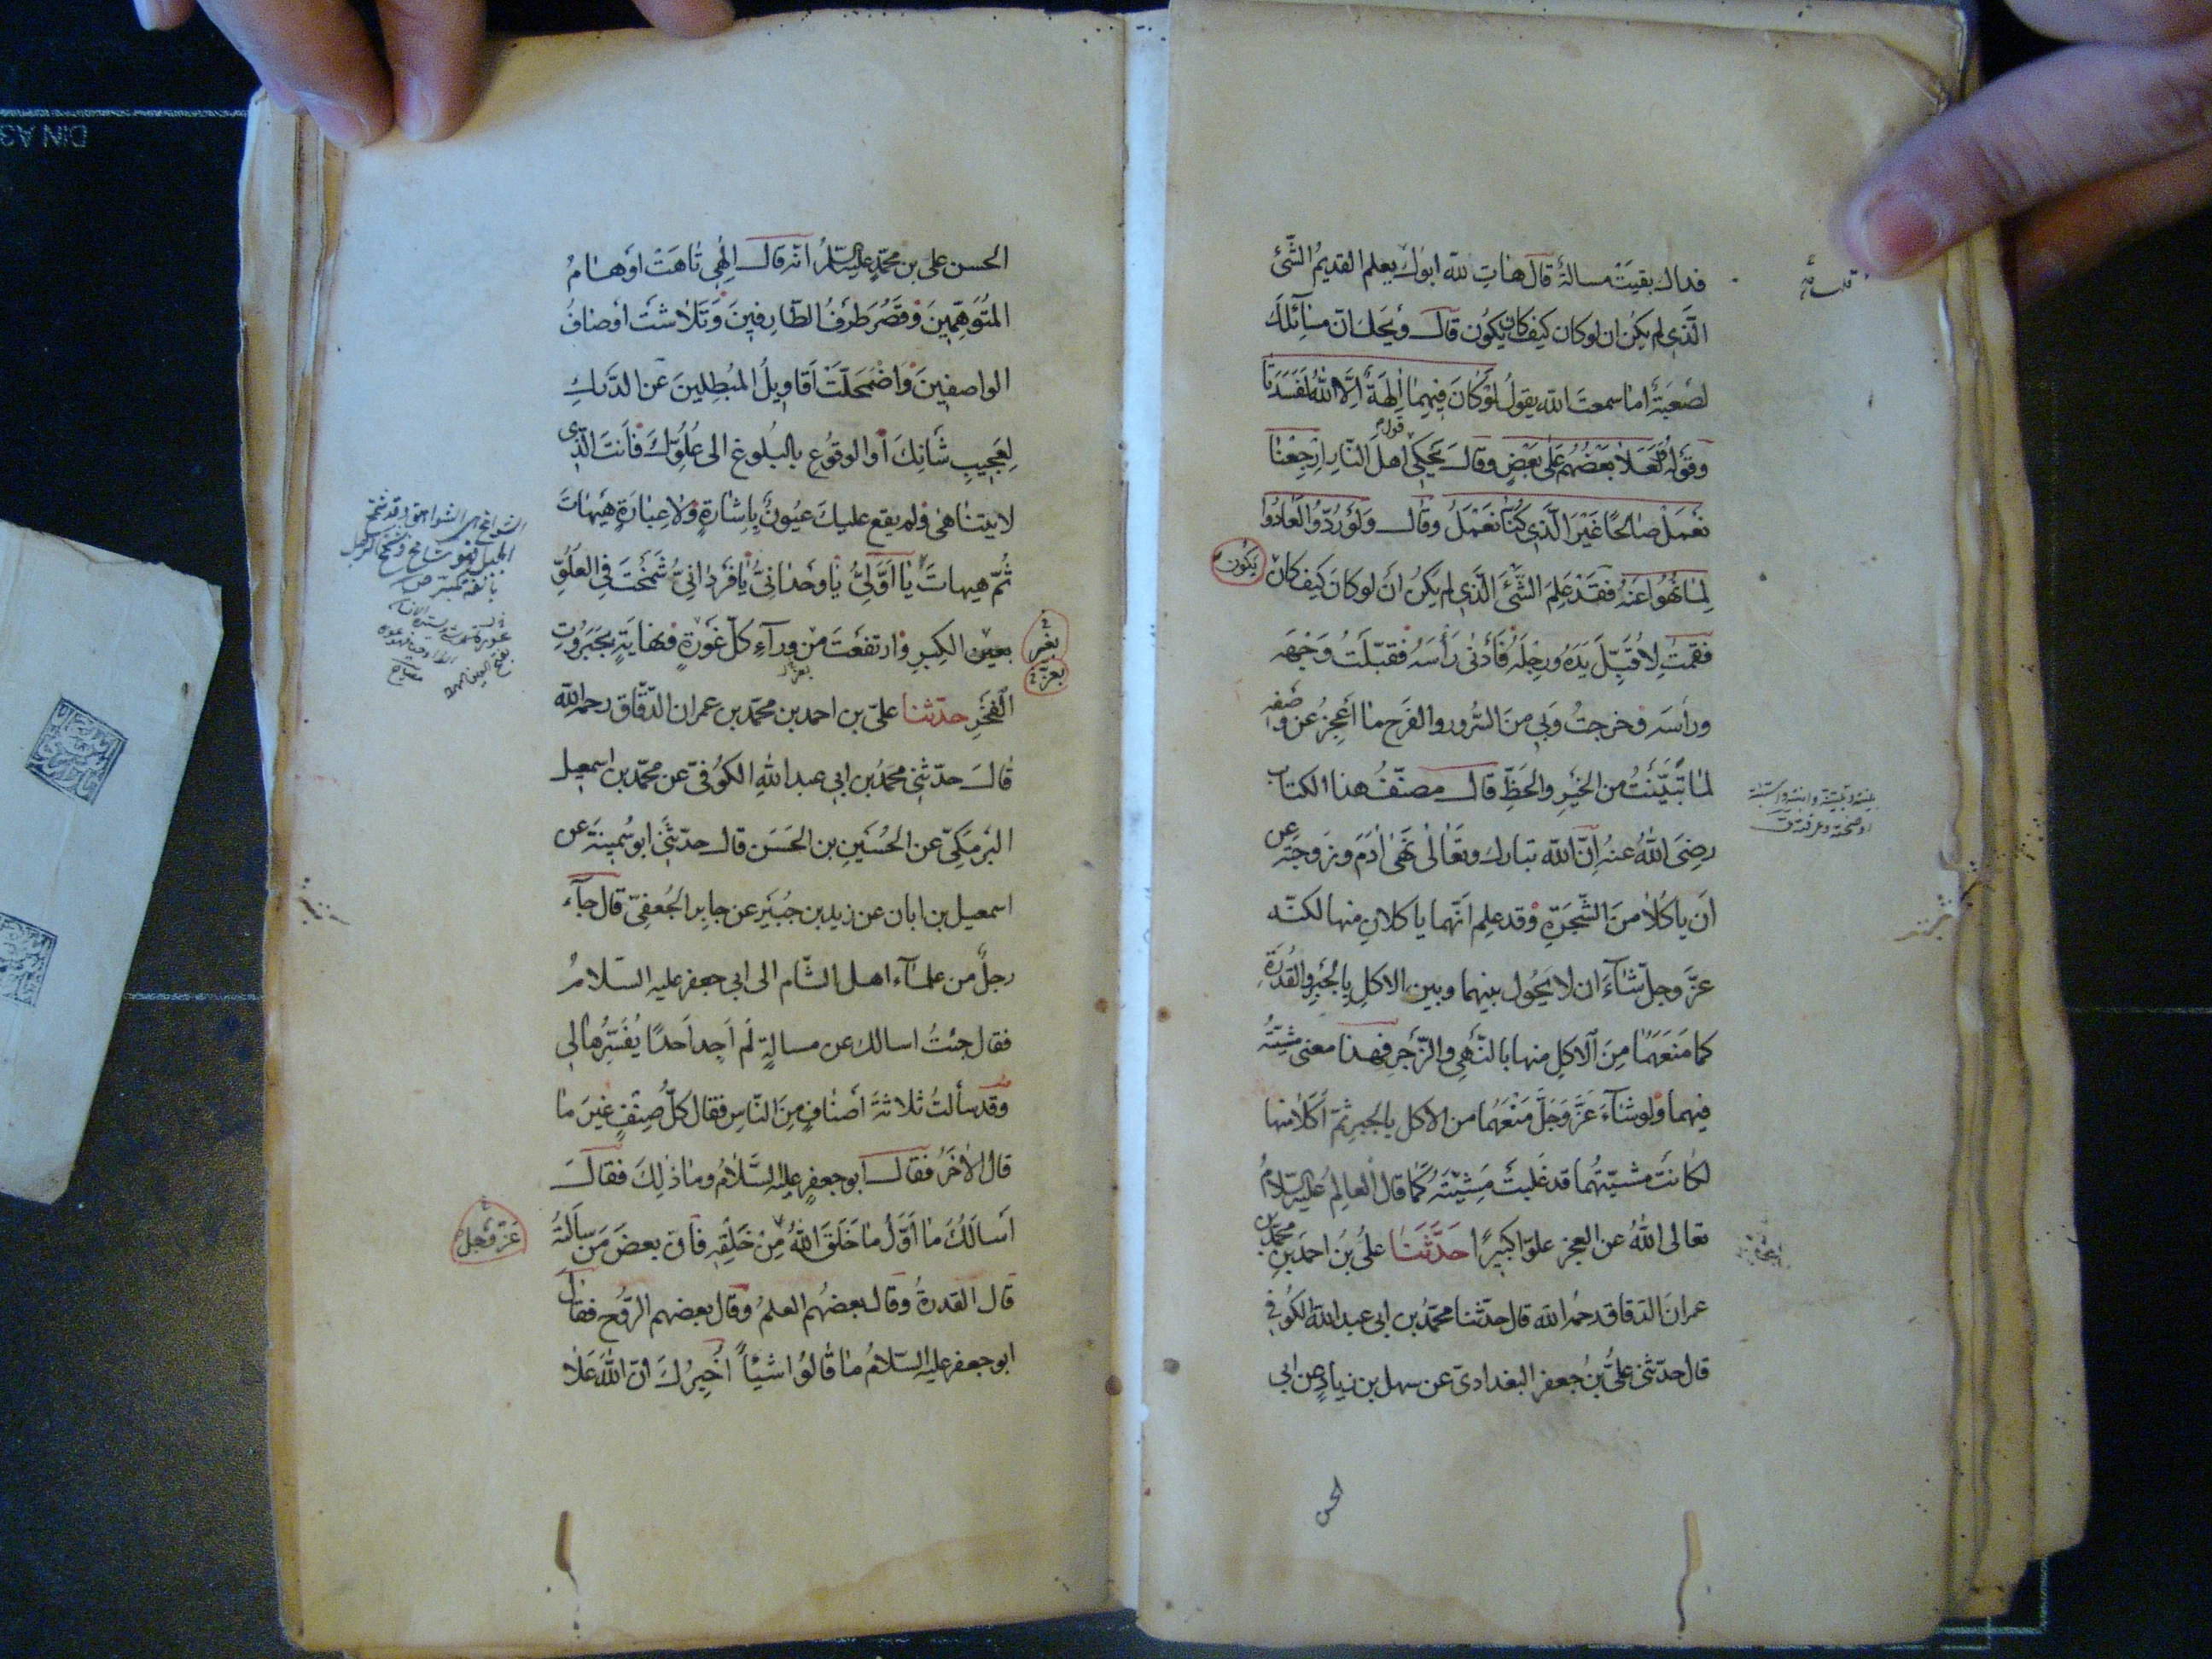 فداك بقيَتْ مسالةٌ قالَ هاتِ للّه ابوك يعلم القديمُ الشّئ
الّذى لم يكن ان لو كان كيف كان يكُون قال ويحك انّ مسآئلك
لصَعبَةٌ اما سمعتَ اللّه يقولُ لَوْ كانَ فِيهِمٰا اٰلِهَةٌ اِلَّا اللّٰهُ لَفَسَدَتٰا
وقَوله وَلَعَلاٰ بَعْضُهُم عَلىٰ بَعْضٍ وقال يحكى قول اهلَ النّارِ اَرْجِعْنٰا
نَعْمَلْ صٰالحًا غَيْرَ الَّذى كُنّٰا نَعْمَلُ وقال وَلَوْ رُدّوُا لَعٰادُوا
لِمٰا نُهُوا عَنهُ فقَدْ عَلِمَ الشَّئَ الَّذى لم يَكنُ اَن لو كانَ كَيف كانَ
يكون
فقمتُ لِاُقَبّلَ يَدَهُ ورِجلَهُ فَاَدْنىٰ رَأسَهُ فقبّلتُ وَجْهَه
ورأسَه وخرجتُ وَبى مِنَ السُّرور والفَرَح ما اَعجِزُ عن وَصْفِه
لمٰا تَبَيَّنْتُ من الخَيْرِ والحَظِّ قال مصنّفُ هذا الكتاب
رضِىَ اللّٰهُ عنهُ اِنّ اللّه تبارك وتَعٰالىٰ نَهىٰ اٰدَمَ وزَوجتَه عن
اَن ياكُلاٰ منَ الشَّجَرَةِ وقد علِم انّهما ياكلان منها لكنّه
عزَّ وجلّ شآءَ ان لا يَحُول بينهما وبين الاكلِ بِالجَبرِ والقُدْرَةِ
كما مَنَعَهُمٰا مِنَ الاكلِ منها بالنّهىِ والزّجرِ فهذا معنى مشيّتُه
فيهما ولو شآءَ عَزَّ وَجَلَّ مَنْعَهُما من الاكل بالجبرِ ثمّ اَكَلاٰ منها
لكٰانَت مشيّتُهما قد غَلبَتْ مَشِيّتَهُ كَما قال العالِم عليه السّلامُ
تعالى اللّٰهُ عن العجز علوّا كبيرًا حَدَّثَنٰا علىُّ بنُ احمدَ بنِ محمّد بن
عمران الدّقاق رحمهُ اللّه قال حدّثنا محمّدُ بن ابى عبد اللّه الكُوفى
قال حدّثنى علىُّ بنُ جعفر البغدادى عن سهل بن زيادٍ عن ابى
الحسن
الحسن على بن محمّد عليه السّلامُ انّه قالَ اِلٰهى تٰاهَتْ اَوهٰامُ
المتَوَهّمِينَ وَقَصُرَ طَرفُ الطّارِفِينَ وَتَلاٰشَتْ اَوصٰافُ
الواصفِينَ وَاضْمَحَلّتْ اَقاوِيلُ المُبْطِلِينَ عَن الدَّرْكِ
لِعَجِيبِ شَانِكَ اَو الوقوُعِ بالبُلوغِ الى عُلُوِّكَ فَاَنتَ الّذى
لا يتناهىٰ ولم يقع عليكَ عيُونٌ بِاِشارةٍ ولاٰ عِبٰارَةٍ هَيهٰاتَ
ثُمّ هيهاتَ يٰا اَوّلِىُّ يٰا وحْدانِىُّ يٰا فَردٰانِىُّ شَمَختَ فِى العُلُوِّ
بعين الكِبرِ وارتفعْتَ من ورآءِ كلّ غَورَةٍ ونهايَةٍ بجَبَروُتِ
بعزّ
بعزّة
الفخرِ حدّثنا علىّ بن احمد بن محمّد بن عمران الدّقّاق رحمه اللّه
قال حدّثنى محمّدُ بن ابى عبد اللّٰه الكوُفىّ عن محمّد بن اسمعيل
البرمَكىّ عن الحُسَينِ بن الحَسَن قال حدّثنى ابو سُمينَة عن
اسمعيل بن ابان عن زيد بن جُبَيرٍ عن جابِر الجُعفِىّ قال جآءَ
رجلٌ من علمآءِ اهل الشّام الى ابى جعفر عليه السّلامُ
فقال جئتُ اسالك عن مسالةٍ لَم اَجِد اَحدًا يُفَسِّرُهٰا لى
وقَد سألتُ ثلاثةَ اَصْنافٍ مِنَ النّاسِ فقال كلُّ صِنْفٍ غيرَ ما
قال الاٰخَرُ فقال ابو جعفرٍ عليه السَّلاٰمُ وما ذٰلِكَ فقالَ
اَسالُكَ مٰا اَوّلُ ما خَلَقَ اللّٰهُ مِنْ خَلقِه فاِنّ بعضَ مَن سالتهُ
عَزّ وجلّ
قال القدرةُ وقال بعضُهم العلمُ وقال بعضهم الرّوُح فقال
ابو جعفر عليه السّلامُ ما قٰالوُا شيْاً اُخبِرُكَ انّ اللّٰهَ عَلاٰ